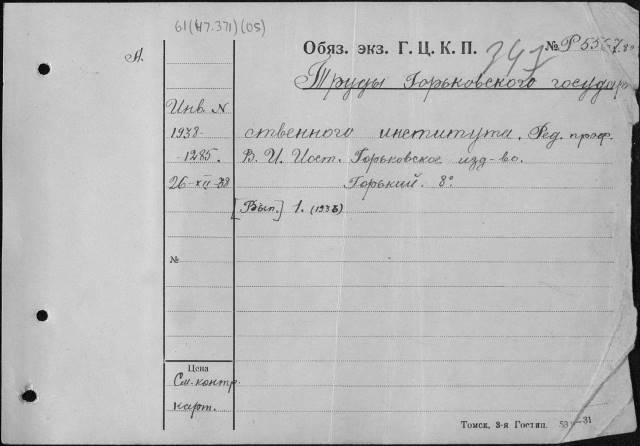 61(47.371)(05)
А.
Обяз. экз. Г. Ц. К. П.
№ Р 5557
Труды Горьковского государ
Инв. N
1938-
1285.
26-XII-38
ственного института. Ред. проф.
В. И. Иост. Горьковское изд-во.
Горький. 8°
[Вып.] 1. (1935)
№
Цена
См. контр.
карт.
Томск, 3-я Гостип. 31